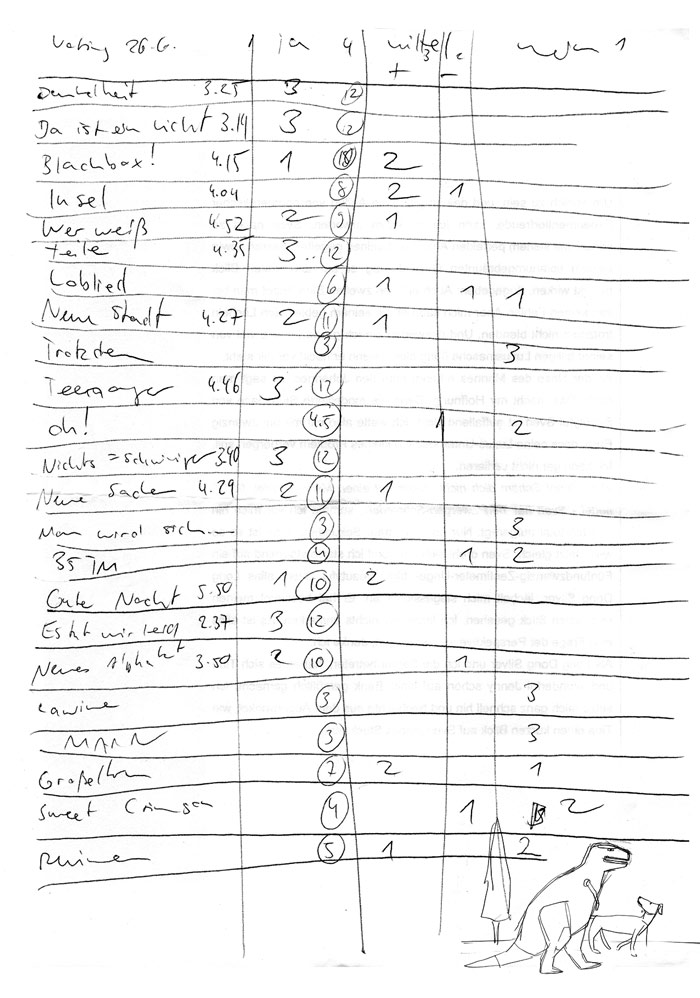 Voting 26.6. 1 ja 4 mittel nein 1
+ 3 2 -
Dunkelheit 3.25 3 12
Da ist ein Licht 3.14 3 12
Blackbox! 4.15 1 10 2
Insel 4.04 8 2 1
Wer weiß 4.52 2 9 1
Teile 4.35 3 .. 12
Loblied 6 1 1 1
Neue Stadt 4.27 2 11 1
Trotzdem 3 3
Teersänger 4.46 3 12
Oh! 4.5 1 2
Nichts = schwieriger 3.40 3 12
Neue Sachen 4.29 2 11 1
Man wird sich... 3 3
35 TM 4 1 2
Gute Nacht 5.50 1 10 2
Es tut mir leid 2.37 3 12
Neues Alphabet 3.50 2 10 1
Lawine 3 3
MANN 3 3
7 2 1
Sweet Crimson 4 1 2
Ruinen 5 1 2